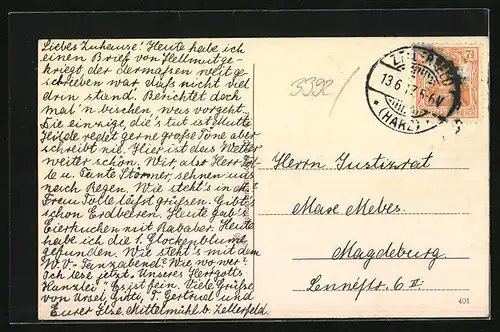 Liebes Zuhause! Heute habe ich
einen Brief von Hellmut ge-
kriegt, der dermaßen weit ge-
schrieben war, daß nicht viel
drin stand. Berichtet doch
mal 'n bischen was vorgeht.
Die einzige, die's tut ist Mutti
redet gerne große Töne aber
schreibt nie. Hier ist das Wetter
weiter schön. Wir, also Herr
u. Tante Störmer, sehnen uns
nach Regen. Wie steht's in
Frem Tolle läßt grüßen. Gibt's
schon Erdbeeren. Heute gab's
Eierkuchen mit Rababer. Heute
habe ich die 1. Glockenblume
gefunden. Wie steht's mit dem
W.V. Tanzabend? Wie wo wer?
Ich lese jetzt „Unseres Herrgotts
Kanzlei“. Es ist fein. Viele Grüße
von Ursel, Gitti, T. Gertrud und
Eurer Else. Mittelmühl b. Zellerfeld.
5392/
13.6.17.6-7V
* (HARZ)
7½
REICH
Herrn Justizrat
Max Mebes.
Magdeburg.
Lennéstr. 6 II
401